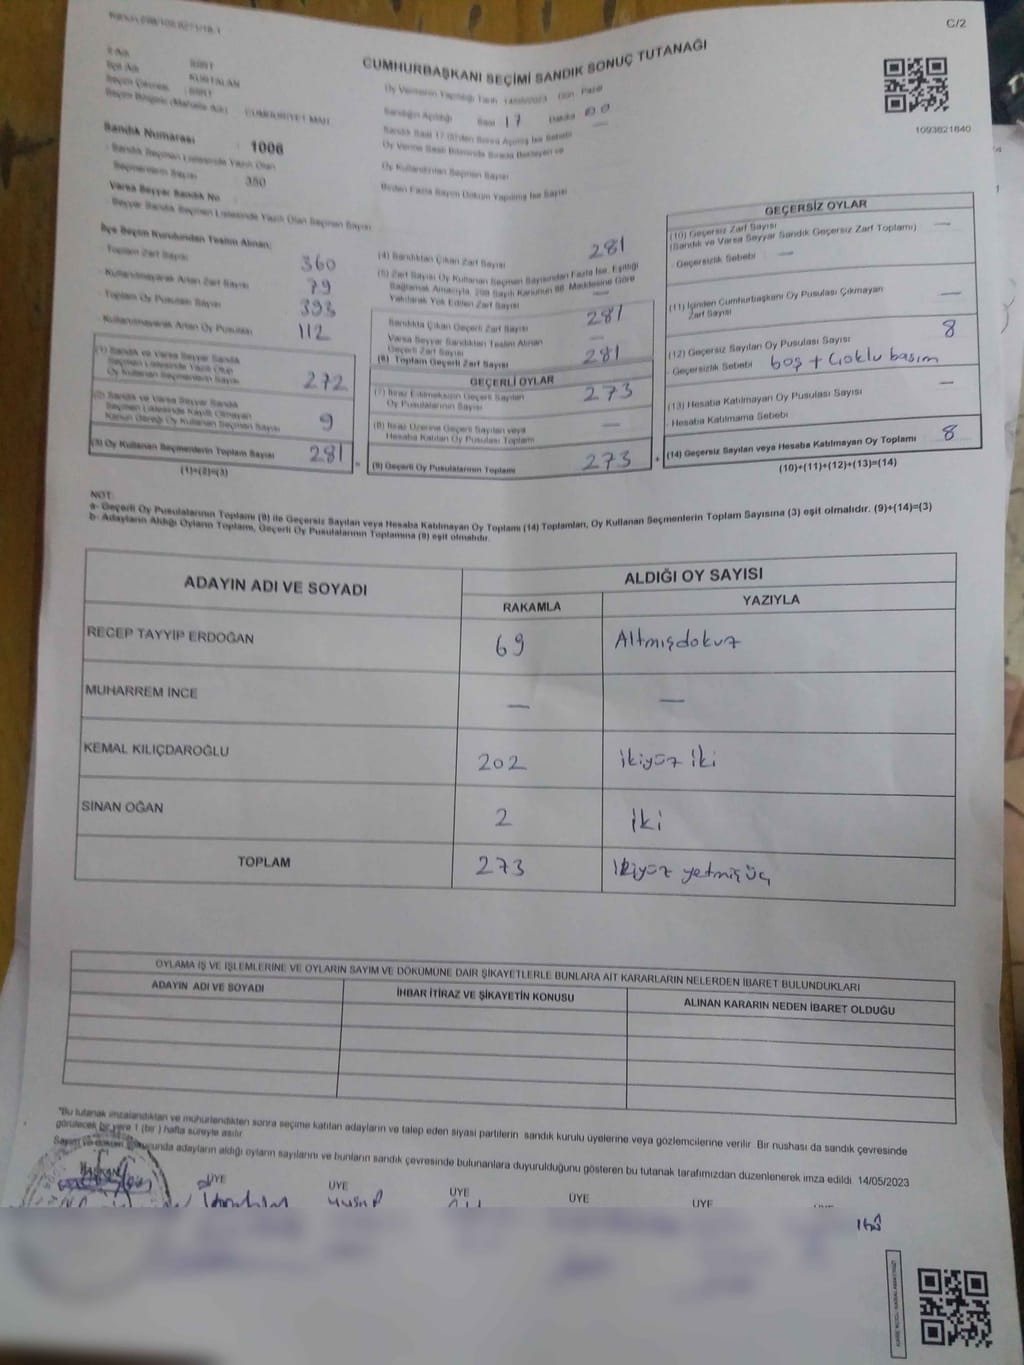 C/2
CUMHURBAŞKANI SEÇİMİ SANDIK SONUÇ TUTANAĞI
1093621840
İl Adı SİİRT
İlçe Adı KURTALAN
Seçim Çevresi : SİİRT
CUMHURİYET MAH.
Sandık Numarası : 1006
Sandık Seçmen Listesinde Yazılı Olan
Seçmenlerin Sayısı 350
Varsa Seyyar Sandık No
Seyyar Sandık Seçmen Listesinde Yazılı Olan Seçmen Sayısı
İlçe Seçim Kurulundan Teslim Alınan;
Toplam Zarf Sayısı 360
Kullanılmayarak Artan Zarf Sayısı 79
Toplam Oy Pusulası Sayısı 393
Kullanılmayarak Artan Oy Pusulası 112
(1) Sandık ve Varsa Seyyar Sandık
Seçmen Listesinde Yazılı Olup
Oy Kullanan Seçmenlerin Sayısı 272
(2) Sandık ve Varsa Seyyar Sandık
Seçmen Listesinde Kayıtlı Olmayan
Kanun Gereği Oy Kullanan Seçmen Sayısı 9
(3) Oy Kullanan Seçmenlerin Toplam Sayısı 281 =
(1)+(2)=(3)
Oy Vermenin Yapıldığı Tarih 14/05/2023 Gün: Pazar
Sandığın Açıldığı Saat 17 Dakika 00
Sandık Saat 17:00'den Sonra Açılmış İse Sebebi —
Oy Verme Saati Bitiminde Sırada Bekleyen ve
Oy Kullandırılan Seçmen Sayısı
Birden Fazla Sayım Döküm Yapılmış İse Sayısı
(4) Sandıktan Çıkan Zarf Sayısı 281
(5) Zarf Sayısı Oy Kullanan Seçmen Sayısından Fazla İse, Eşitliği
Sağlamak Amacıyla, 298 Sayılı Kanunun 98. Maddesine Göre
Yakılarak Yok Edilen Zarf Sayısı —
Sandıkta Çıkan Geçerli Zarf Sayısı 281
Varsa Seyyar Sandıktan Teslim Alınan
Geçerli Zarf Sayısı —
(6) Toplam Geçerli Zarf Sayısı 281
GEÇERLİ OYLAR
(7) İtiraz Edilmeksizin Geçerli Sayılan
Oy Pusulalarının Sayısı 273
(8) İtiraz Üzerine Geçerli Sayılan veya
Hesaba Katılan Oy Pusulası Toplamı —
(9) Geçerli Oy Pusulalarının Toplamı 273 +
GEÇERSİZ OYLAR
(10) Geçersiz Zarf Sayısı
(Sandık ve Varsa Seyyar Sandık Geçersiz Zarf Toplamı) —
Geçersizlik Sebebi —
(11) İçinden Cumhurbaşkanı Oy Pusulası Çıkmayan
Zarf Sayısı —
(12) Geçersiz Sayılan Oy Pusulası Sayısı 8
Geçersizlik Sebebi boş + çoklu basım
(13) Hesaba Katılmayan Oy Pusulası Sayısı —
Hesaba Katılmama Sebebi
(14) Geçersiz Sayılan veya Hesaba Katılmayan Oy Toplamı 8
(10)+(11)+(12)+(13)=(14)
NOT:
a- Geçerli Oy Pusulalarının Toplamı (9) ile Geçersiz Sayılan veya Hesaba Katılmayan Oy Toplamı (14) Toplamları, Oy Kullanan Seçmenlerin Toplam Sayısına (3) eşit olmalıdır. (9)+(14)=(3)
b- Adayların Aldığı Oyların Toplamı, Geçerli Oy Pusulalarının Toplamına (9) eşit olmalıdır.
ADAYIN ADI VE SOYADI ALDIĞI OY SAYISI
RAKAMLA YAZIYLA
RECEP TAYYİP ERDOĞAN 69 Altmışdokuz
MUHARREM İNCE — —
KEMAL KILIÇDAROĞLU 202 ikiyüz iki
SİNAN OĞAN 2 iki
TOPLAM 273 ikiyüz yetmiş üç
OYLAMA İŞ VE İŞLEMLERİNE VE OYLARIN SAYIM VE DÖKÜMÜNE DAİR ŞİKAYETLERLE BUNLARA AİT KARARLARIN NELERDEN İBARET BULUNDUKLARI
ADAYIN ADI VE SOYADI İHBAR İTİRAZ VE ŞİKAYETİN KONUSU ALINAN KARARIN NEDEN İBARET OLDUĞU
*Bu tutanak imzalandıktan ve mühürlendikten sonra seçime katılan adayların ve talep eden siyasi partilerin sandık kurulu üyelerine veya gözlemcilerine verilir. Bir nushası da sandık çevresinde
görülecek bir yere 1 (bir) hafta süreyle asılır.
Sayım ve döküm sonucunda adayların aldığı oyların sayılarını ve bunların sandık çevresinde bulunanlara duyurulduğunu gösteren bu tutanak tarafımızdan düzenlenerek imza edildi. 14/05/2023
BAŞKAN ÜYE ÜYE ÜYE ÜYE ÜYE